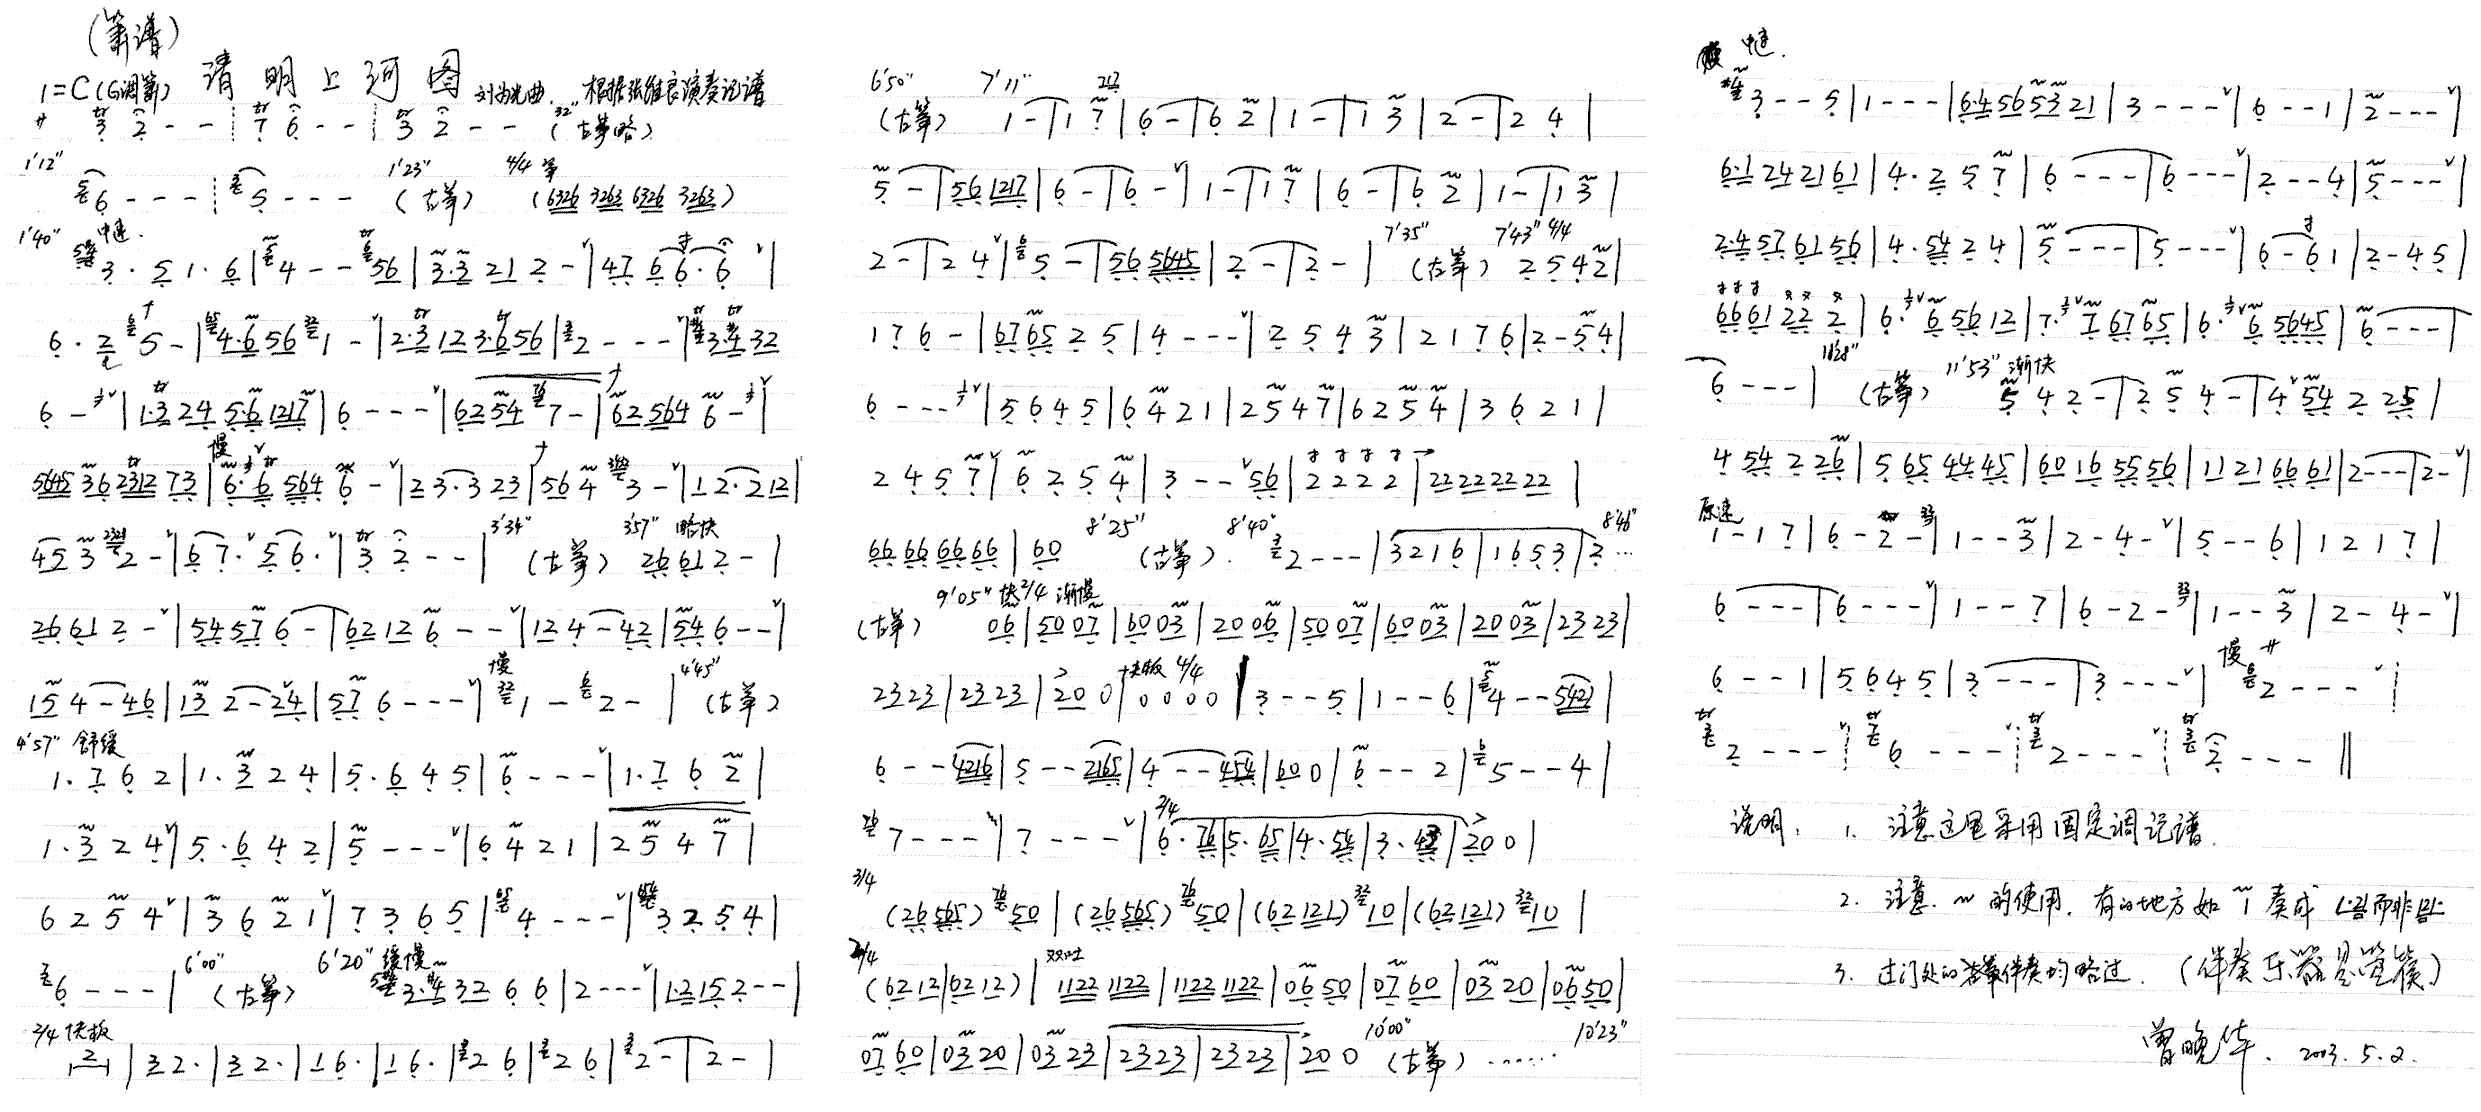 (箫谱)
1=C(G调箫) 请明上河图 刘为光曲. 根据张维良演奏记谱
サ 3 2 - - ┆ 7 6 - - ┆ 3 2 - - (古筝略) 32"
1'12" 6 - - - ┆ 5 - - - 1'23" (古筝) 4/4 筝 (6326 3263 6326 3263)
1'40" 中速.
3 · 5 1 · 6 | 4 - - 56 | 3·3 21 2 - | 47 6 6 · 6 |
6 · 2 5 - | 4·6 56 1 - | 2·3 12 3·6 56 | 2 - - - | 3·4 32
6 - | 1·3 24 5·6 1217 | 6 - - - | 62 54 7 - | 62 564 6 - |
慢
5645 36 2312 73 | 6·6 564 6 - | 2 3·3 23 | 56 4 3 - | 1 2·2 12 |
45 3 2 - | 6 7· 5 6· | 3 2 - - | 3'34" (古筝) 3'57" 略快 26 61 2 - |
26 61 2 - | 54 57 6 - | 62 12 6 - - | 12 4 - 42 | 54 6 - - |
15 4 - 46 | 13 2 - 24 | 57 6 - - - | 慢 1 - 2 - | 4'45" (古筝)
4'57" 舒缓
1· 7 6 2 | 1· 3 2 4 | 5· 6 4 5 | 6 - - - | 1· 7 6 2 |
1· 3 2 4 | 5· 6 4 2 | 5 - - - | 6 4 2 1 | 2 5 4 7 |
6 2 5 4 | 3 6 2 1 | 7 3 6 5 | 4 - - - | 3 2 5 4 |
6 - - - | 6'00" (古筝) 6'20" 缓慢 3·4 32 6 6 | 2 - - - | 12 15 2 - - |
2/4 快板
2 1 | 3 2· | 3 2· | 1 6· | 1 6· | 2 6 | 2 6 | 2 - | 2 - |
6'50" (古筝) 7'11" 1 - | 1 7 | 6 - | 6 2 | 1 - | 1 3 | 2 - | 2 4 |
5 - | 56 1217 | 6 - | 6 - | 1 - | 1 7 | 6 - | 6 2 | 1 - | 1 3 |
2 - | 2 4 | 5 - | 56 5645 | 2 - | 2 - | 7'35" (古筝) 7'43" 4/4 2 5 4 2 |
1 7 6 - | 67 65 2 5 | 4 - - - | 2 5 4 3 | 2 1 7 6 | 2 - 5 4 |
6 - - - | 5 6 4 5 | 6 4 2 1 | 2 5 4 7 | 6 2 5 4 | 3 6 2 1 |
2 4 5 7 | 6 2 5 4 | 3 - - 56 | 2 2 2 2 | 22 22 22 22 |
66 66 66 66 | 60 8'25" (古筝). 8'40" 2 - - - | 3 2 1 6 | 1 6 5 3 | 2 ... 8'46"
(古筝) 9'05" 快2/4 渐慢 06 | 50 07 | 60 03 | 20 06 | 50 07 | 60 03 | 20 03 | 23 23 |
23 23 | 23 23 | 20 0 | 快板 4/4 0 0 0 0 | 3 - - 5 | 1 - - 6 | 4 - - 5421 |
6 - - 4216 | 5 - - 2165 | 4 - - 454 | 60 0 | 6 - - 2 | 5 - - 4 |
7 - - - | 7 - - - | 3/4 6 · 76 | 5 · 65 | 4 · 54 | 3 · 43 | 20 0 |
3/4 (26 565) 50 | (26 565) 50 | (62 121) 10 | (62 121) 10 |
2/4 (62 12 | 62 12) | 双吐 1122 1122 | 1122 1122 | 06 50 | 07 60 | 03 20 | 06 50 |
07 60 | 03 20 | 03 23 | 23 23 | 23 23 | 20 0 10'00" (古筝) ...... 10'23"
中速.
3 - - 5 | 1 - - - | 6·4 56 53 21 | 3 - - - | 6 - - 1 | 2 - - - |
6·1 24 21 61 | 4 · 2 5 7 | 6 - - - | 6 - - - | 2 - - 4 | 5 - - - |
2·4 57 61 56 | 4 · 54 2 4 | 5 - - - | 5 - - - | 6 - 6 1 | 2 - 4 5 |
66 61 22 2 | 6 · 6 56 12 | 7 · 7 67 65 | 6 · 6 5645 | 6 - - - |
6 - - - | 11'28" (古筝) 11'53" 渐快 5 4 2 - | 2 5 4 - | 4 54 2 25 |
4 54 2 26 | 5 65 44 45 | 60 16 55 56 | 11 21 66 61 | 2 - - - | 2 - |
原速
1 - 1 7 | 6 - 2 - | 1 - - 3 | 2 - 4 - | 5 - - 6 | 1 2 1 7 |
6 - - - | 6 - - - | 1 - - 7 | 6 - 2 - | 1 - - 3 | 2 - 4 - |
6 - - 1 | 5 6 4 5 | 3 - - - | 3 - - - | 慢 サ 2 - - - ┆
2 - - - ┆ 6 - - - ┆ 2 - - - ┆ 2 - - - ‖
说明: 1. 注意这里采用固定调记谱.
2. 注意. 〰 的使用. 有的地方如 1 奏成 121 而非 121
3. 过门处的古筝伴奏均略过. (伴奏乐器是箜篌)
曾晓华. 2003. 5. 2.